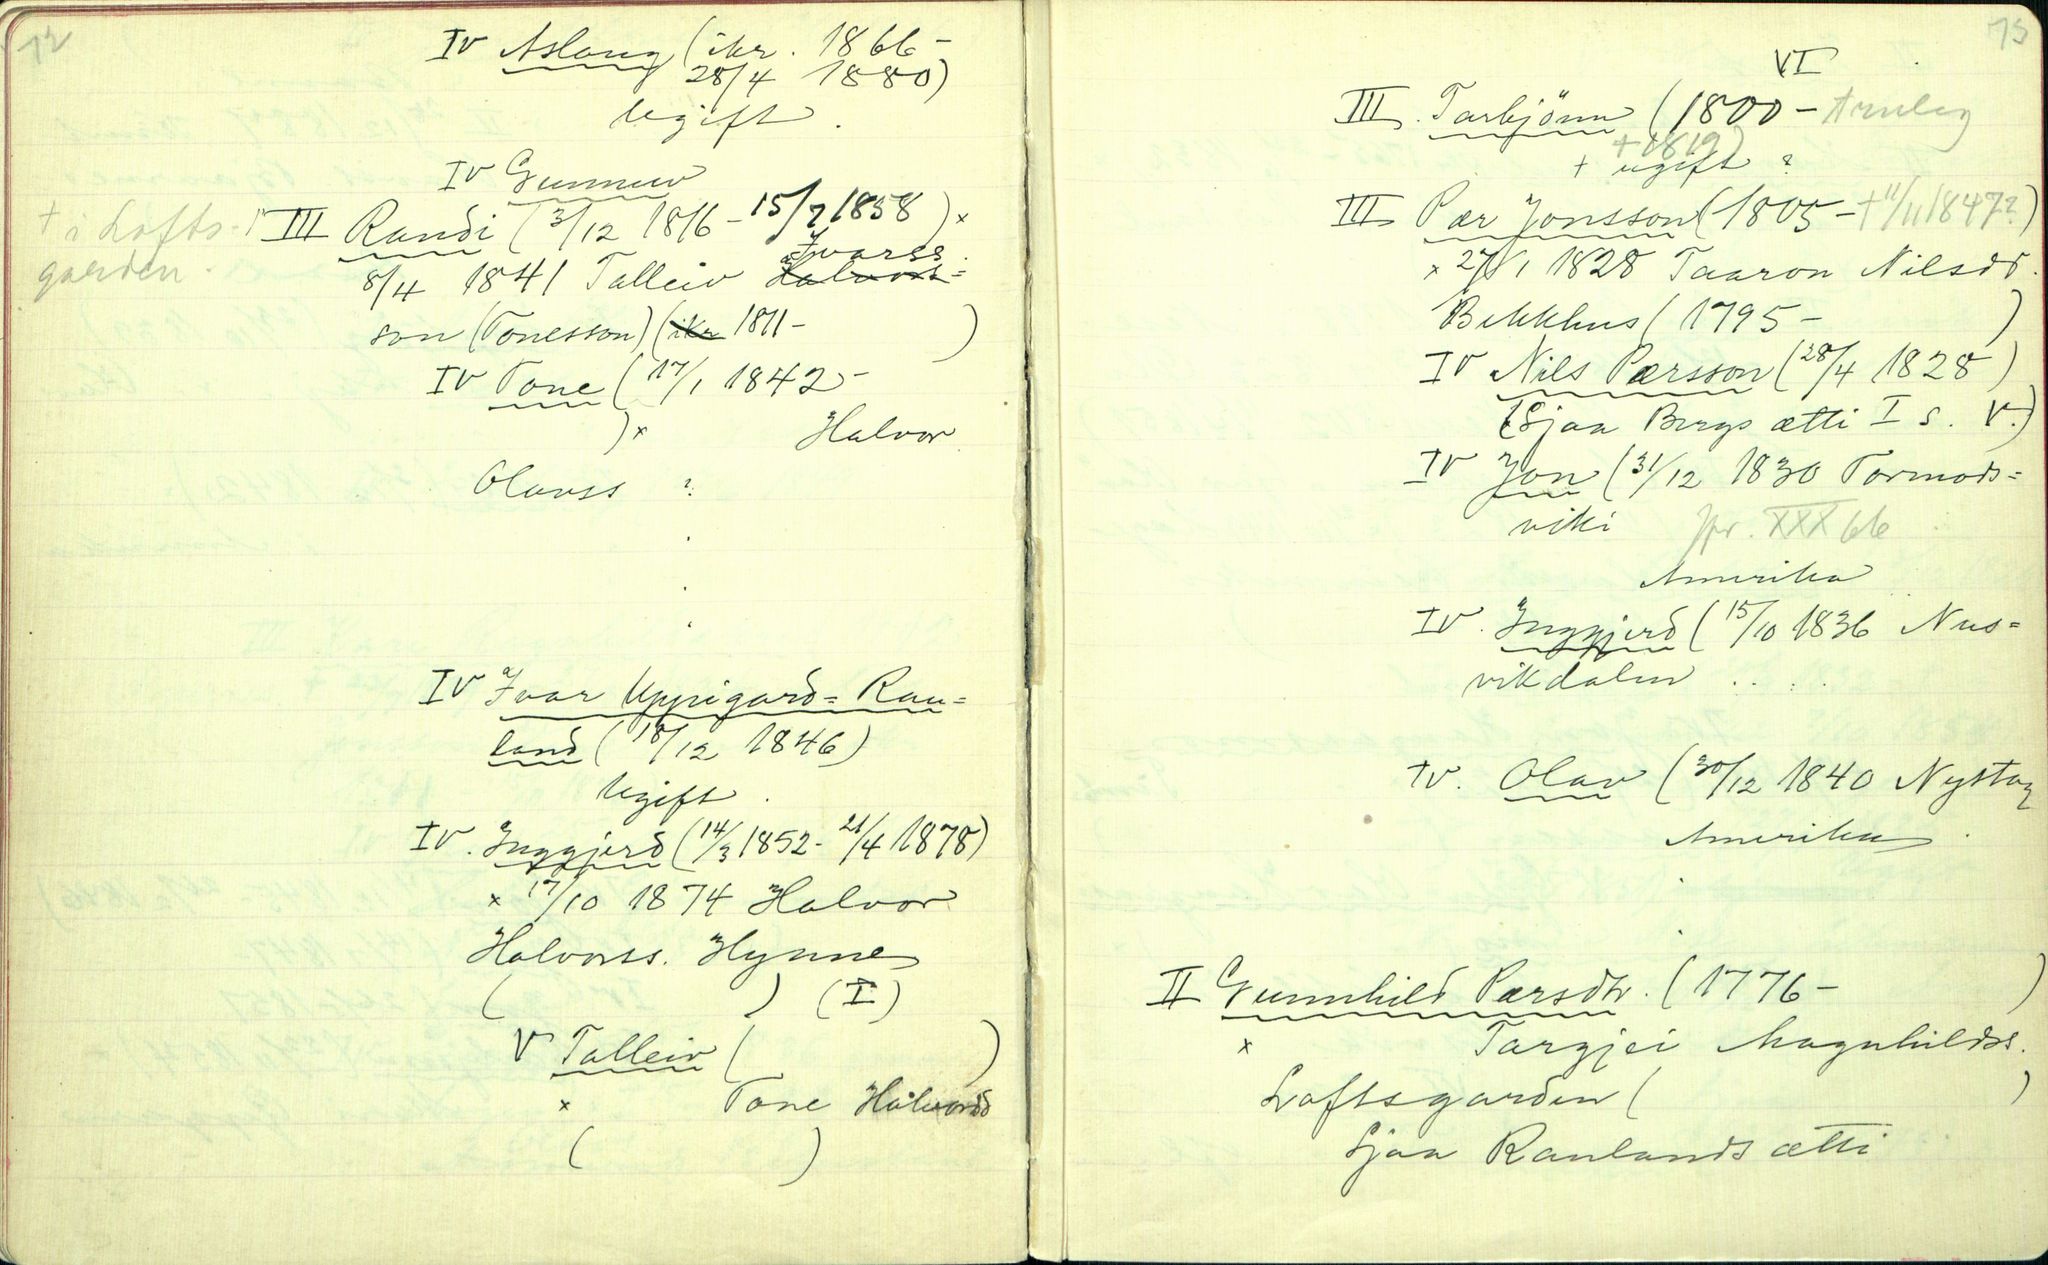 72
IV Aslaug (ikr. 1866 -
28/4 1880)
Ugift.
IV Gunnuv
III Randi (3/12 1816 - 15/7 1858) x
+ i Lofts-
garden.
Ivarss.
8/4 1841 Talleiv Halvors=
son (Tonesson) (ikr 1811 - )
IV Tone (17/1 1842 -
) x Halvor
Olavss ?
IV Ivar Uppigard= Rau=
land (18/12 1846)
Ugift.
IV. Inggjerd (14/3 1852 - 21/4 1878)
x 17/10 1874 Halvor
Halvorss. Hynne
( ) (I)
V Talleiv ( )
x Tone Halvorsd
( )
75
VI
III. Tarbjönn (1800 -
+ 1819)
+ ugift ?
III Pær Jonsson (1805 - + 11/11 1847?)
x 27/1 1828 Taaron Nilsdt.
Bekkhus (1795 - )
IV Nils Pærsson (28/4 1828)
(Sjaa Bergs ætti I s. V.)
IV Jon (31/12 1830 Tormods=
viki Jfr. XXX 66
Amerika
IV. Inggjerd (15/10 1836 Nus=
vikdalen . . . .
IV. Olav (30/12 1840 Nystog
Amerika.
II Gunnhild Pærsdtr. (1776 - )
x Targjei Magnhildss.
Loftsgarden ( )
Sjaa Raulands ætti